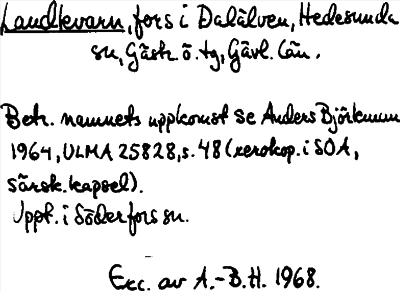 Landkvarn, fors i Dalälven, Hedesunda
sn, Gästr. ö. tg, Gävl. län.
Betr. namnets uppkomst se Anders Björkman
1964, ULMA 25828, s. 48 (xerokop. i SOA,
särsk. kapsel).
Uppt. i Söderfors sn.
Exc. av A.-B.H. 1968.